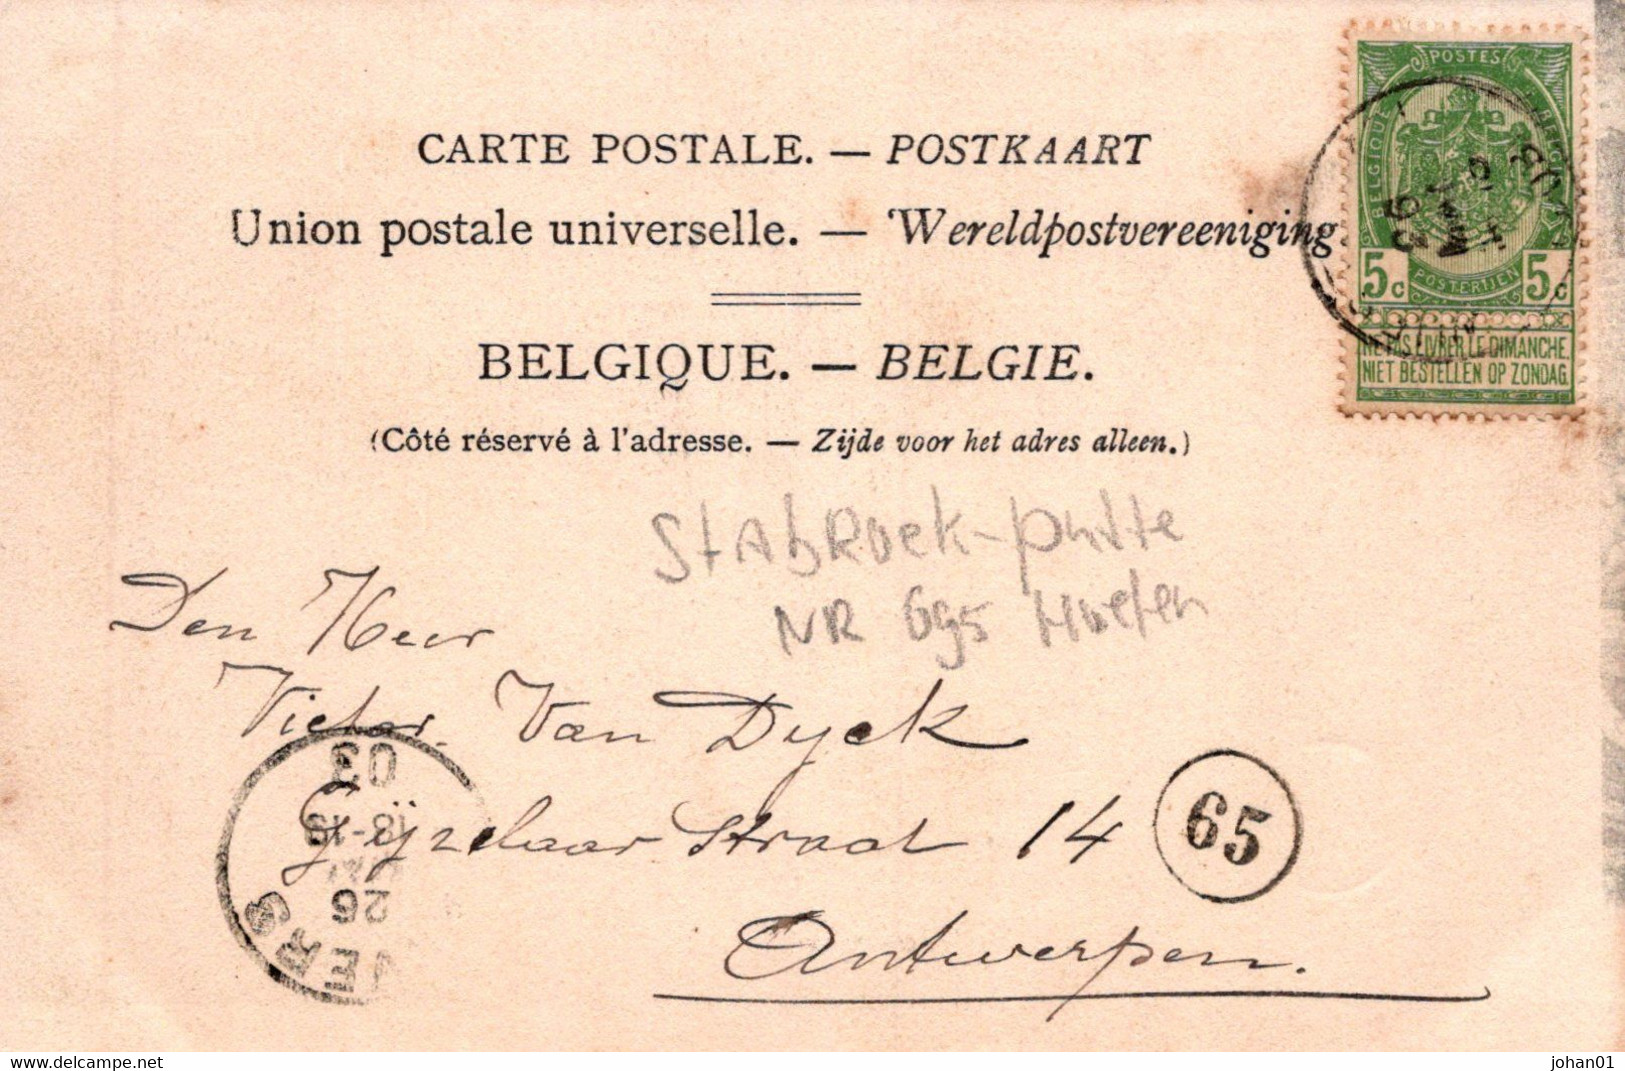 CARTE POSTALE. — POSTKAART
Union postale universelle. — Wereldpostvereeniging
BELGIQUE. — BELGIE.
(Côté réservé à l'adresse. — Zijde voor het adres alleen.)
POSTES
BELGIQUE
BELGIE
5c POSTERIJEN 5c
NE PAS LIVRER LE DIMANCHE.
NIET BESTELLEN OP ZONDAG.
StAbRoek-putte
NR 695 Hoelen
Den Heer
Victor Van Dyck
straat 14
Antwerpen.
65
03
26
VERS
delcampe.net
johan01